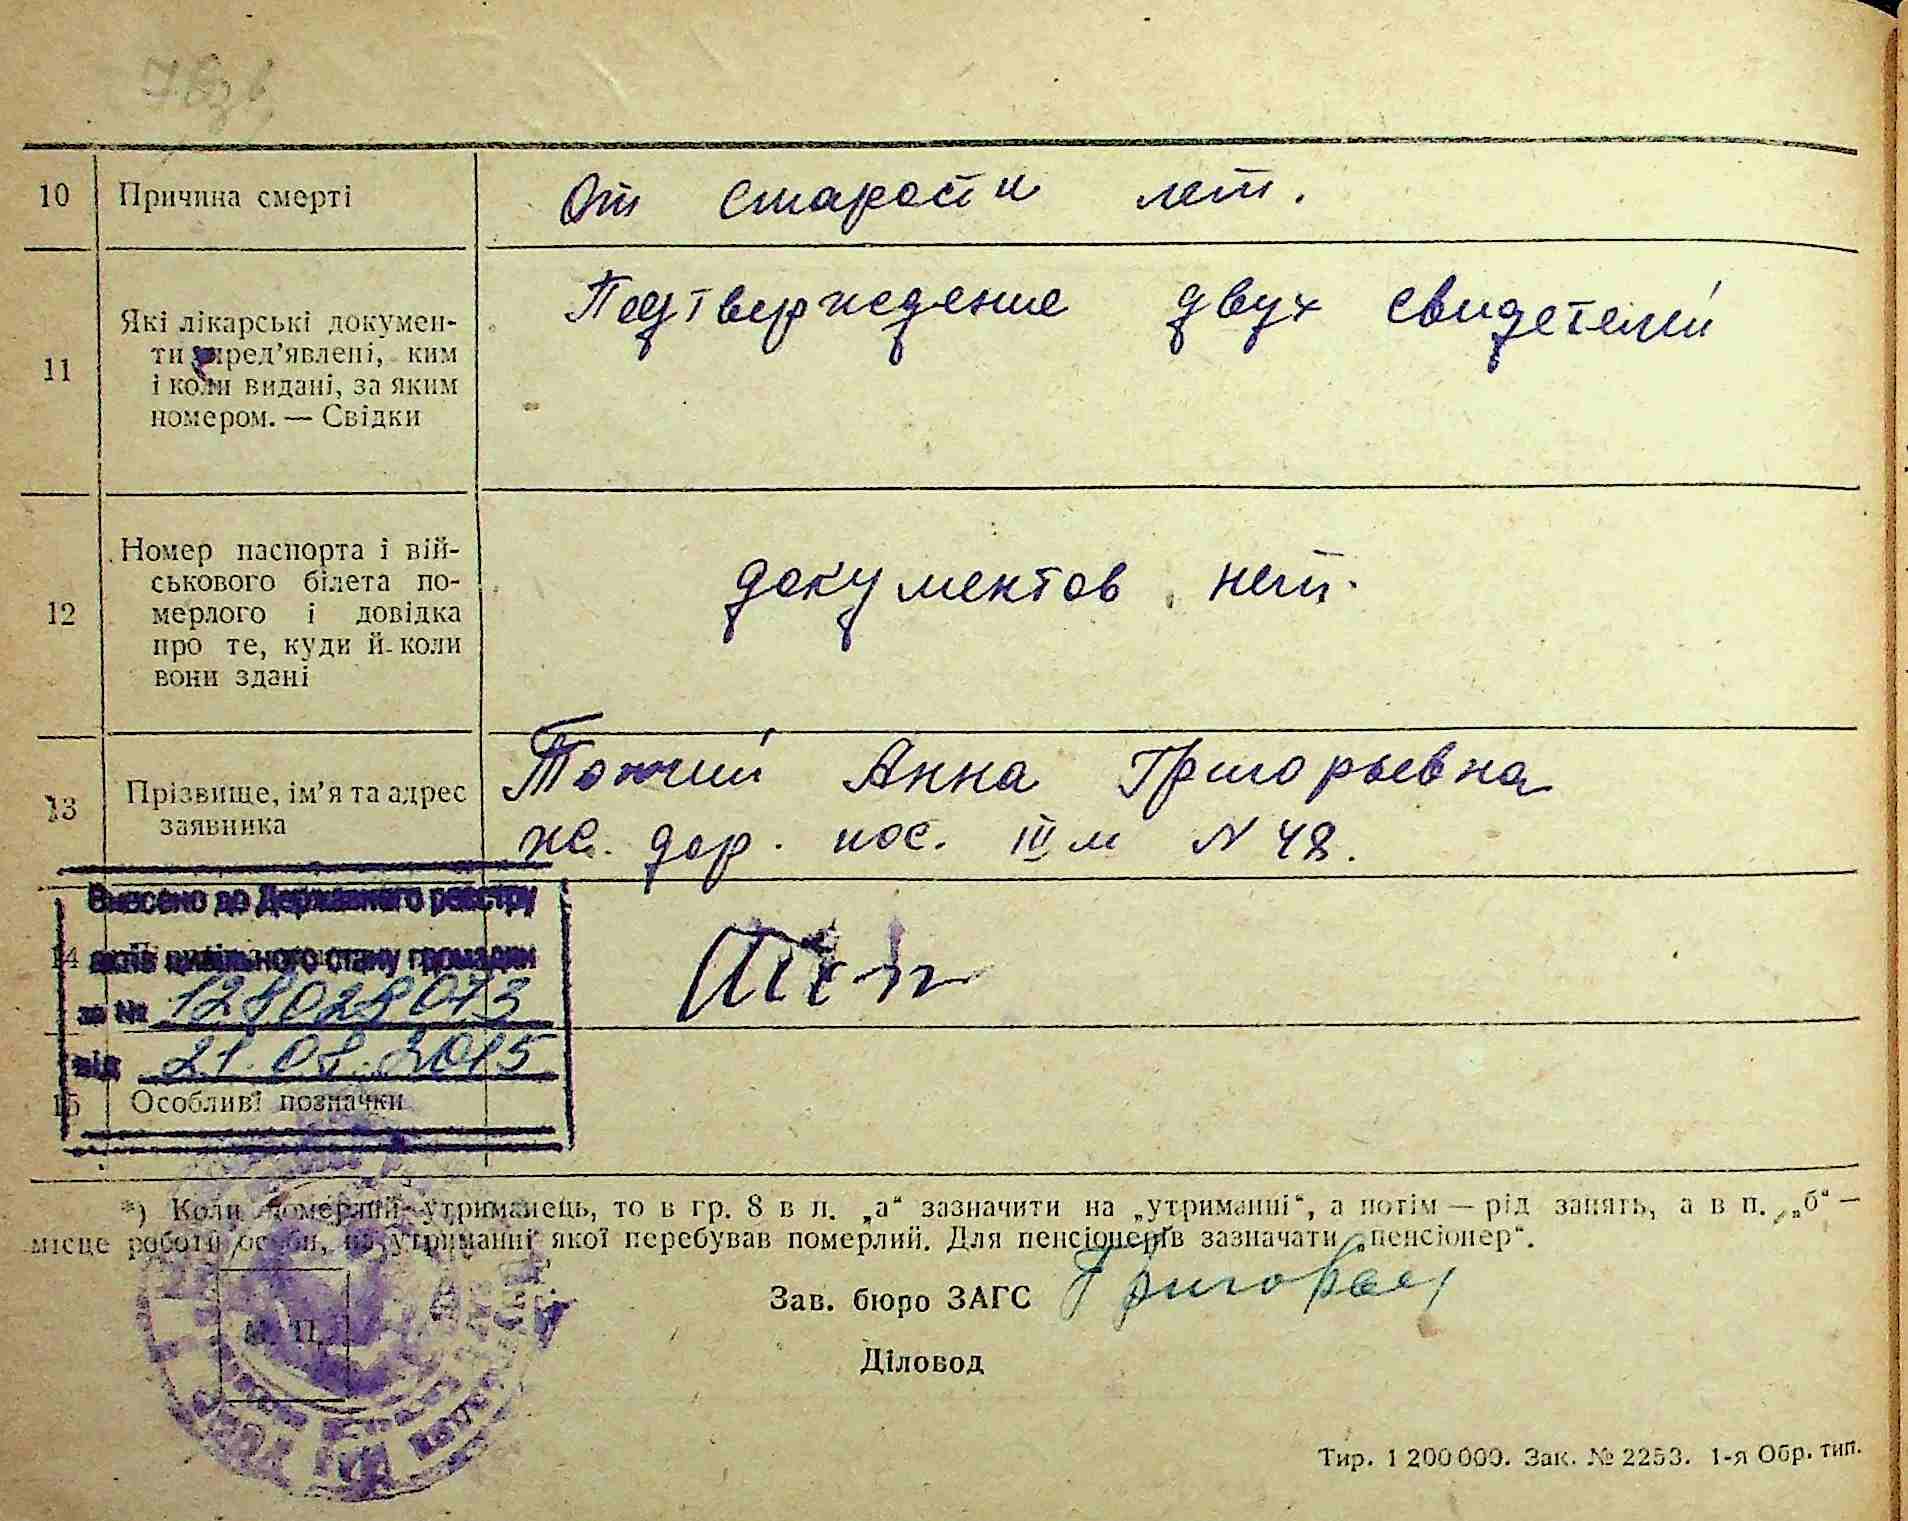 10 Причина смерті От старости лет.
11 Які лікарські докумен-
ти пред'явлені, ким
і коли видані, за яким
номером. — Свідки
Подтверждение двух свидетелей
12 Номер паспорта і вій-
ськового білета по-
мерлого і довідка
про те, куди й коли
вони здані
документов нет.
13 Прізвище, ім'я та адрес
заявника
Анна Григорьевна
ж. дор. пос. IV м N 48.
Внесено до Державного реєстру
14 актів цивільного стану громадян
за № 128028073
від 21.08.2015
15 Особливі позначки
*) Коли померлий утриманець, то в гр. 8 в п. „а“ зазначити на „утриманні“, а потім — рід занять, а в п. „б“ —
місце роботи особи, на утриманні якої перебував померлий. Для пенсіонерів зазначати „пенсіонер“.
Зав. бюро ЗАГС
Діловод
М. П.
Тир. 1 200 000. Зак. № 2253. 1-я Обр. тип.